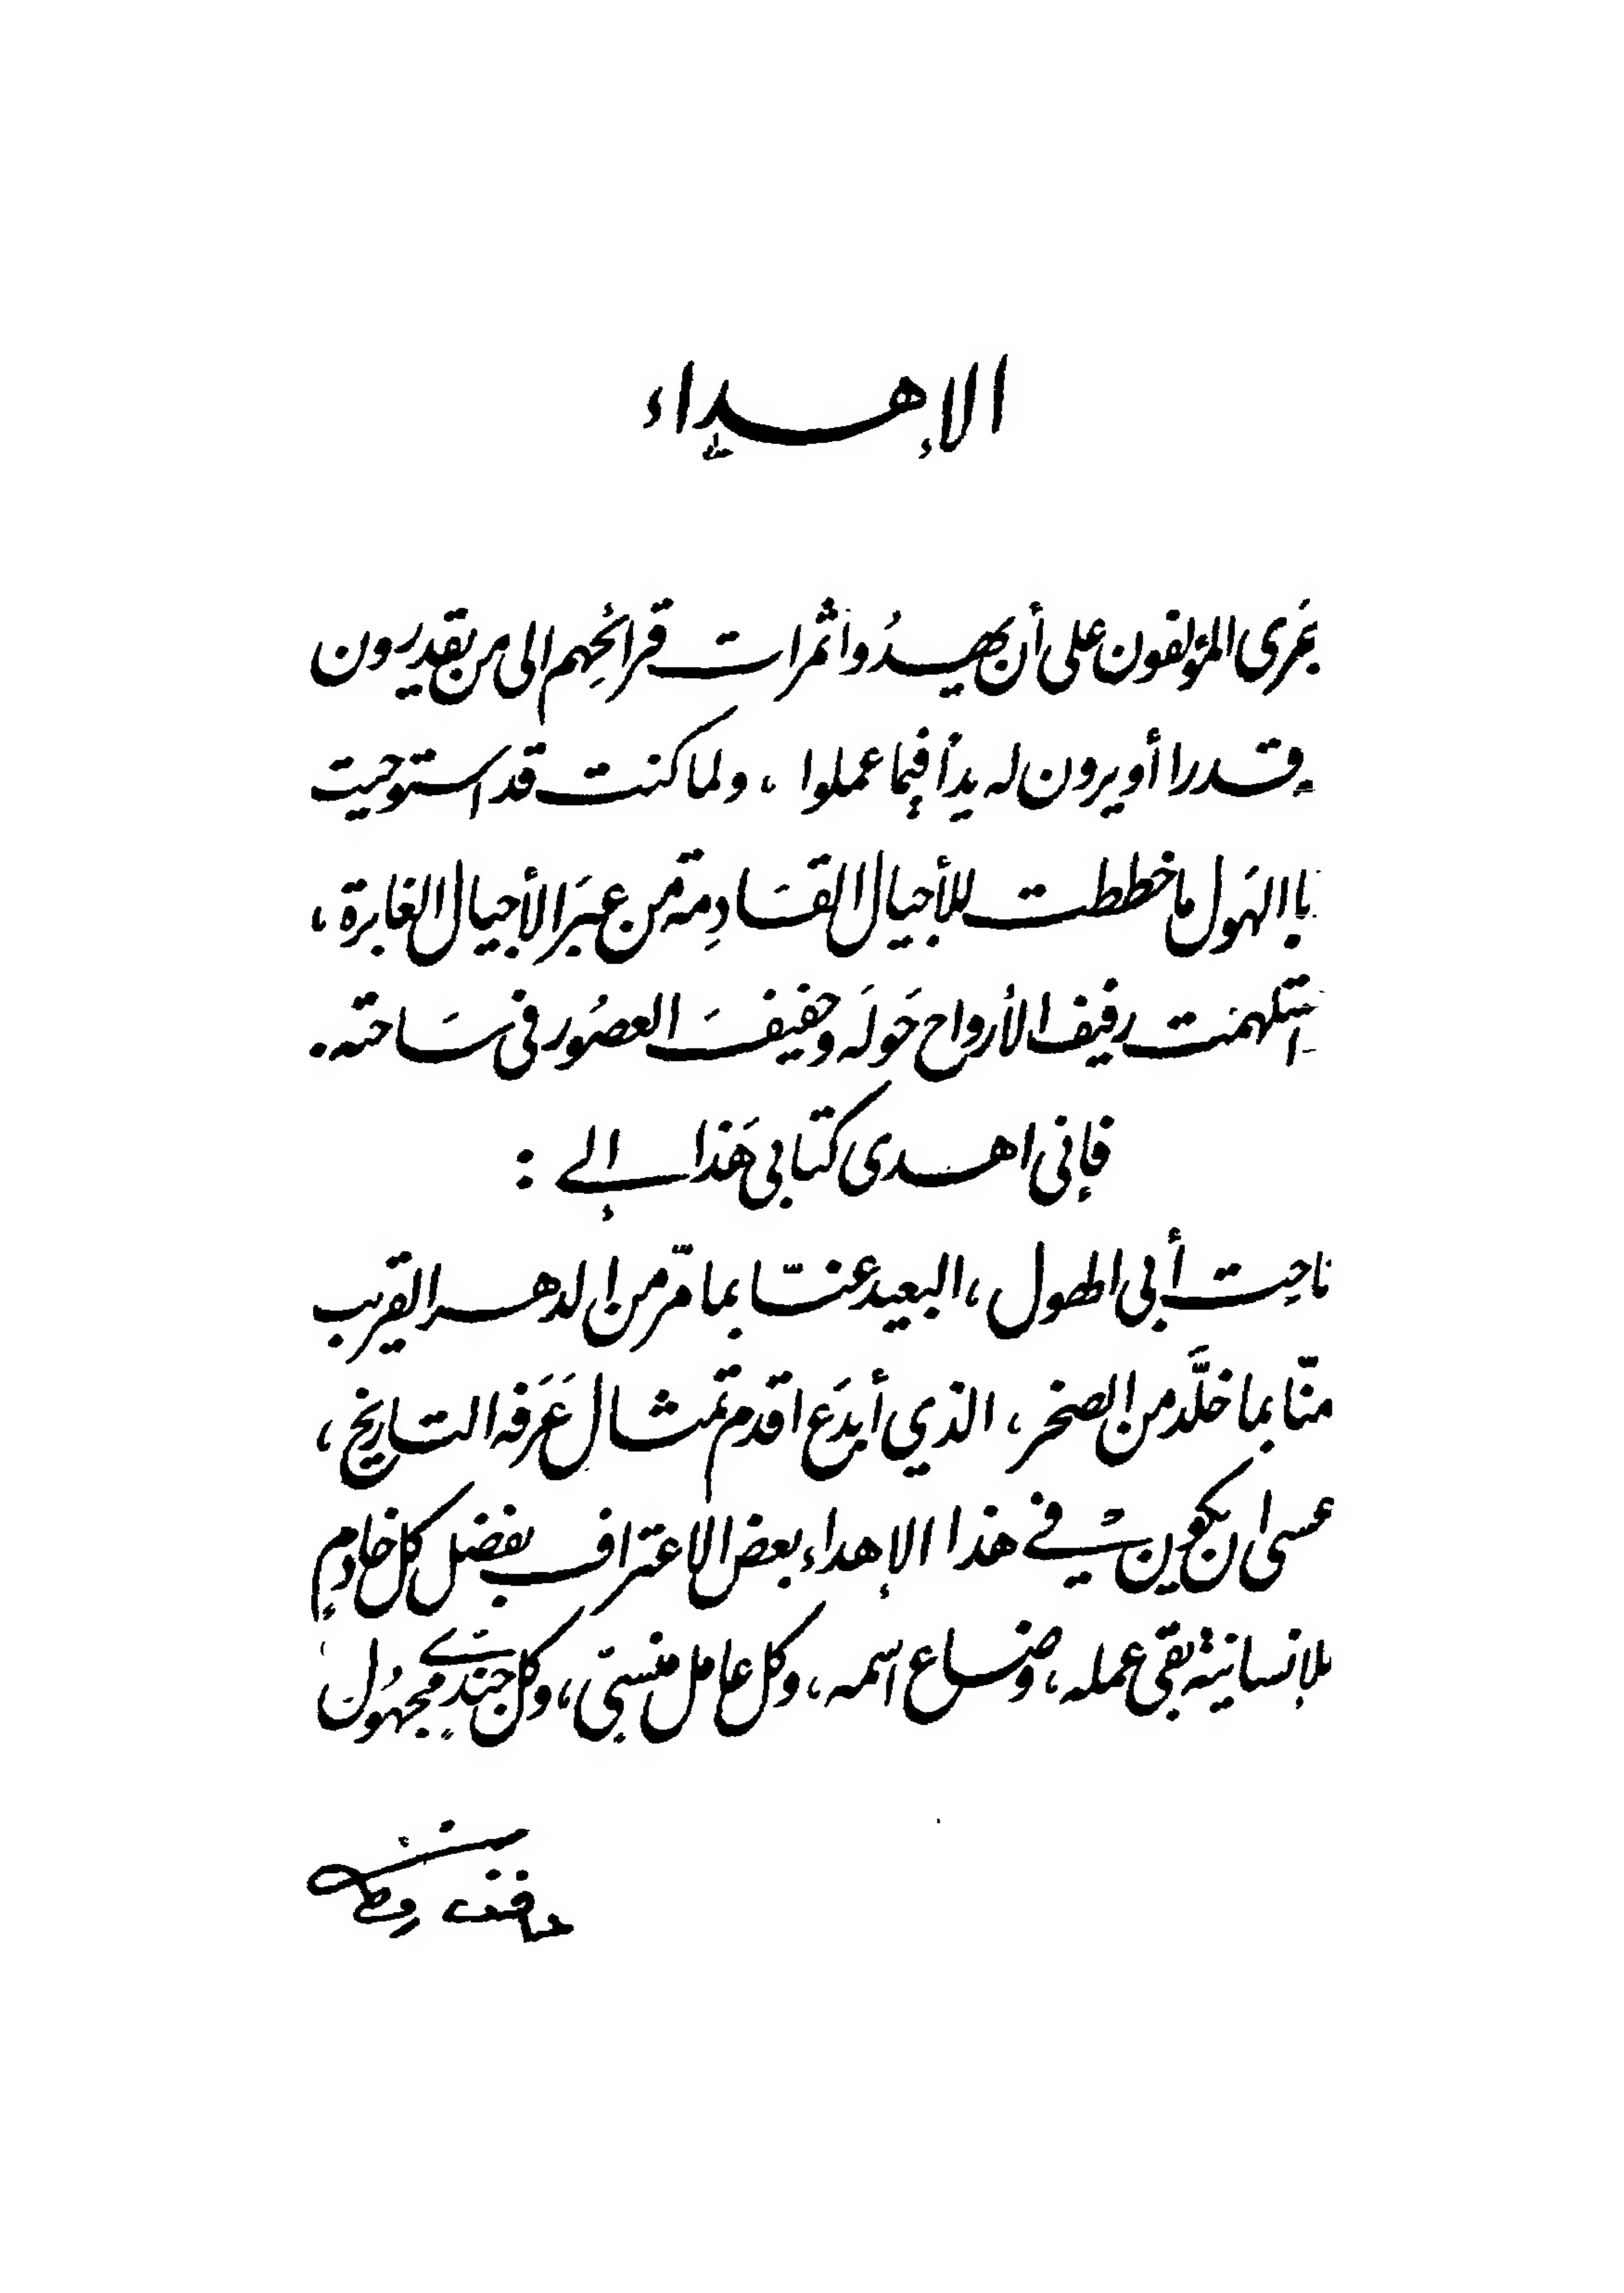 الإهداء
جرى المؤلفون على أن يهدُوا ثمرات قرائحِهم الى من يقدرون
قدرا أو يرون له يداً فيما عملوا ، ولما كنت قد استوحيت
با الهَول ما خططت للأجيال القَادِمة من عبَر الأجيال الغابرة ،
استلهمت رفيف الأرواح حَولَه وحفيفَ العصُور فى سَاحته .
فإنى اهدى كتابى هَذا إلى :
ناحِت أبى الهول ، البعيد عنّا بما مّر من الدهر القريب
منّا بما خلَّد من الصخر ، الذي أبدَع اقدم تمثال عَرَفه التاريخ ،
عسى ان يكون فى هذا الإهداء بعض الاعتراف بفضل كل خادِم
للإنسانية بقى عمله ، وضاع اسمه ، وكل عامل منسىّ ، وكل جندى مجهُول